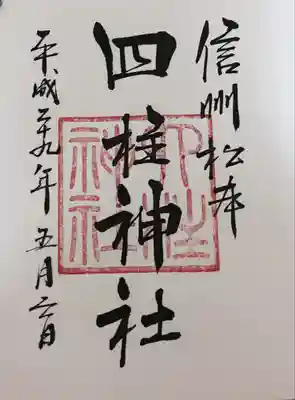 信州松本
四柱神社
平成二十九年 五月 日
四柱神社